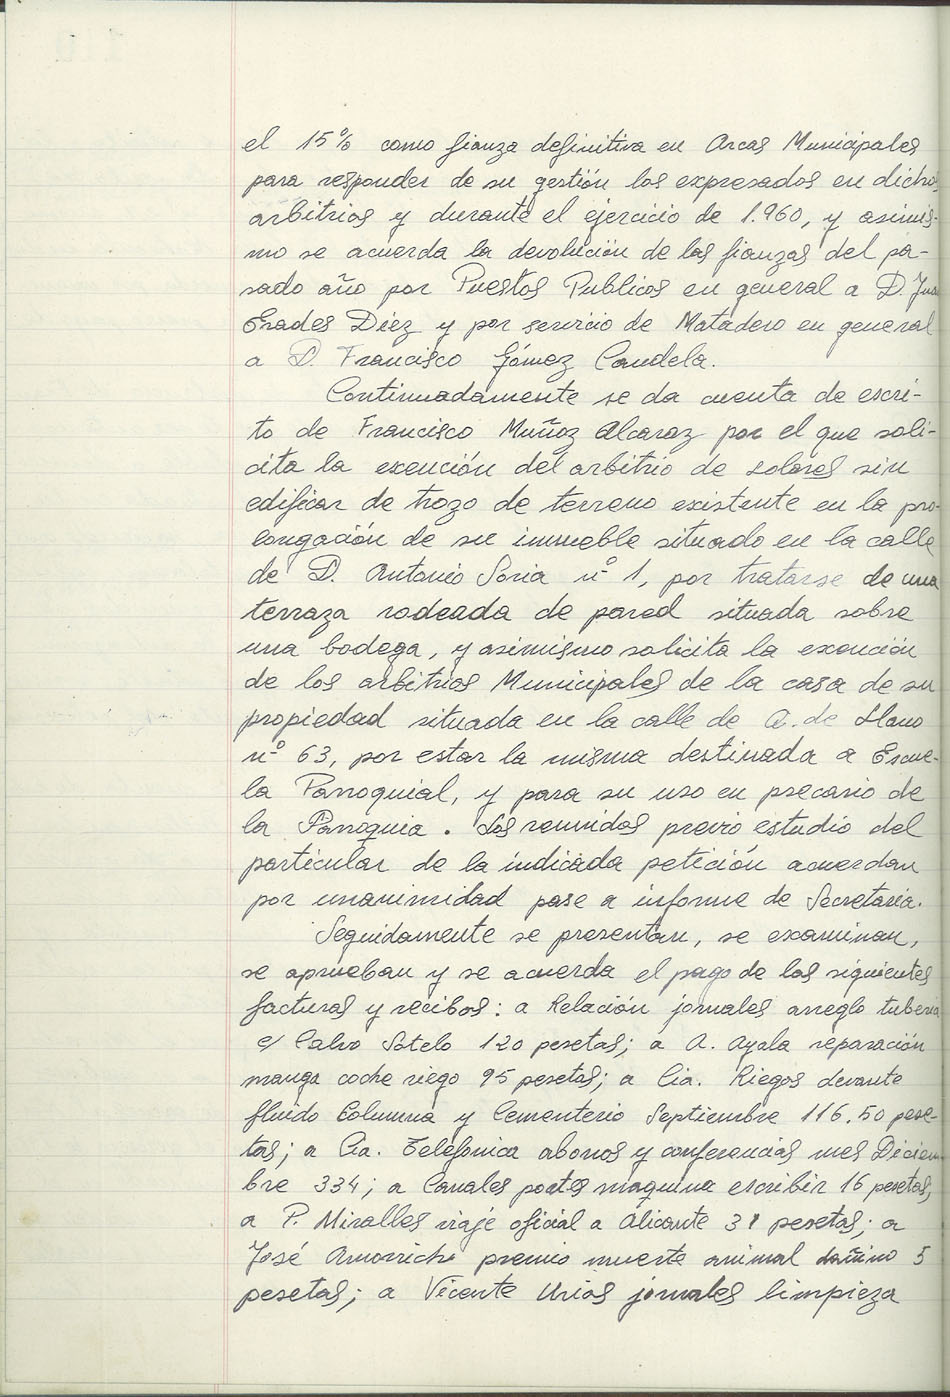 el 15% como fianza definitiva en Arcas Municipales
para responder de su gestión los expresados en dichos
arbitrios y durante el ejercicio de 1.960, y asimis-
mo se acuerda la devolución de las fianzas del pa-
sado año por Puestos Publicos en general a D. Juan
Grades Díez y por servicio de Matadero en general
a D. Francisco Gómez Candela.
Continuadamente se da cuenta de escri-
to de Francisco Muñoz Alcaraz por el que soli-
cita la exención del arbitrio de solares sin
edificar de trozo de terreno existente en la pro-
longación de su inmueble situado en la calle
de D. Antonio Soria nº 1, por tratarse de una
terraza rodeada de pared situada sobre
una bodega, y asimismo solicita la exención
de los arbitrios Municipales de la casa de su
propiedad situada en la calle de A. de Llano
nº 63, por estar la misma destinada a Escue-
la Parroquial, y para su uso en precario de
la Parroquia. Los reunidos previo estudio del
particular de la indicada petición acuerdan
por unanimidad pase a informe de Secretaria.
Seguidamente se presentan, se examinan,
se aprueban y se acuerda el pago de las siguientes
facturas y recibos: a Relación jornales arreglo tuberia
c/ Calvo Sotelo 120 pesetas; a A. Ayala reparación
manga coche riego 95 pesetas; a Cia. Riegos Levante
fluido Columna y Cementerio Septiembre 116.50 pese-
tas; a Cia. Telefonica abonos y conferencias mes Diciem
bre 334; a Canales portes maquina escribir 16 pesetas,
a P. Miralles viaje oficial a Alicante pesetas; a
José premio muerte animal dañino 5
pesetas; a Vicente Urios jornales limpieza